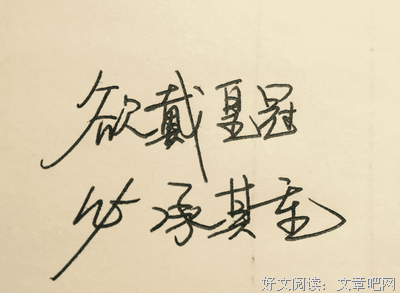 欲戴皇冠
必承其重
好文阅读：文章吧网